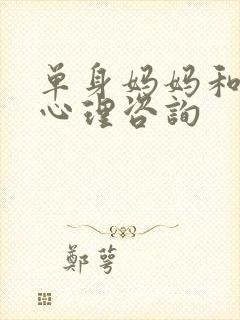 单身妈妈和
心理咨询
鄭萼